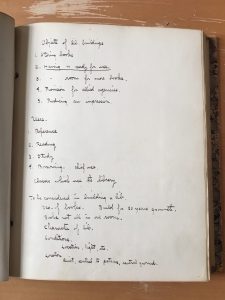 Objects of lib. buildings
1. Storing books
2. Having in ready for use
3. " room for more books.
4. Provision for allied agencies.
5. Producing an impression
Uses.
1. Reference
2. Reading
3. Study
4. Browsing.
Classes which use the library
To be considered in building a lib.
Use of books. Build for 20 years growth.
Books not all in one room.
Character of lib.
Conditions.
Location, light, etc.
Location
Quiet, central to patrons, central ground.